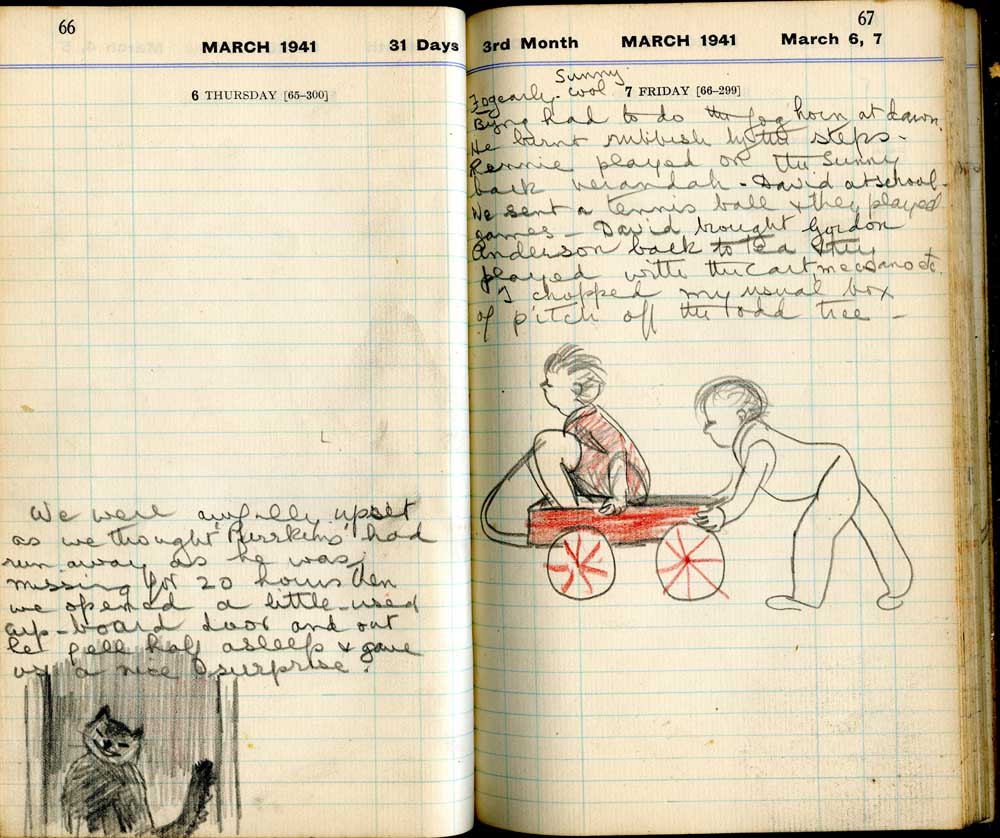 66
MARCH 1941 31 Days
6 THURSDAY [65-300]
We were awfully upset
as we thought 'Purrkins' had
run away as he was
missing for 20 hours then
we opened a little-used
cup-board door and out
he fell half asleep & gave
us a nice surprise.
67
3rd Month MARCH 1941 March 6, 7
Sunny
Fog early - cool 7 FRIDAY [66-299]
Byng had to do the fog horn at dawn.
He burnt rubbish by the steps.
Rennie played on the sunny
back verandah - David at school.
We sent a tennis ball & they played
games - David brought Gordon
Anderson back to tea they
played with the cart, meccano etc.
I chopped my usual box
of pitch off the old tree -